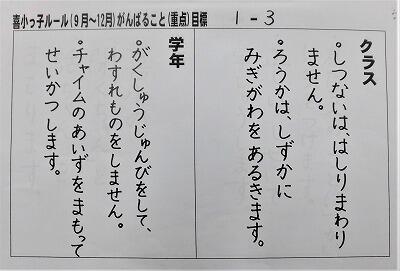 喜小っ子ルール(9月~12月)がんばること(重点)目標 1-3
クラス
・しつないは、はしりまわり
ません。
・ろうかは、しずかに
みぎがわを あるきます。
学年
・がくしゅうじゅんびをして、
わすれものをしません。
・チャイムのあいずをまもって
せいかつします。